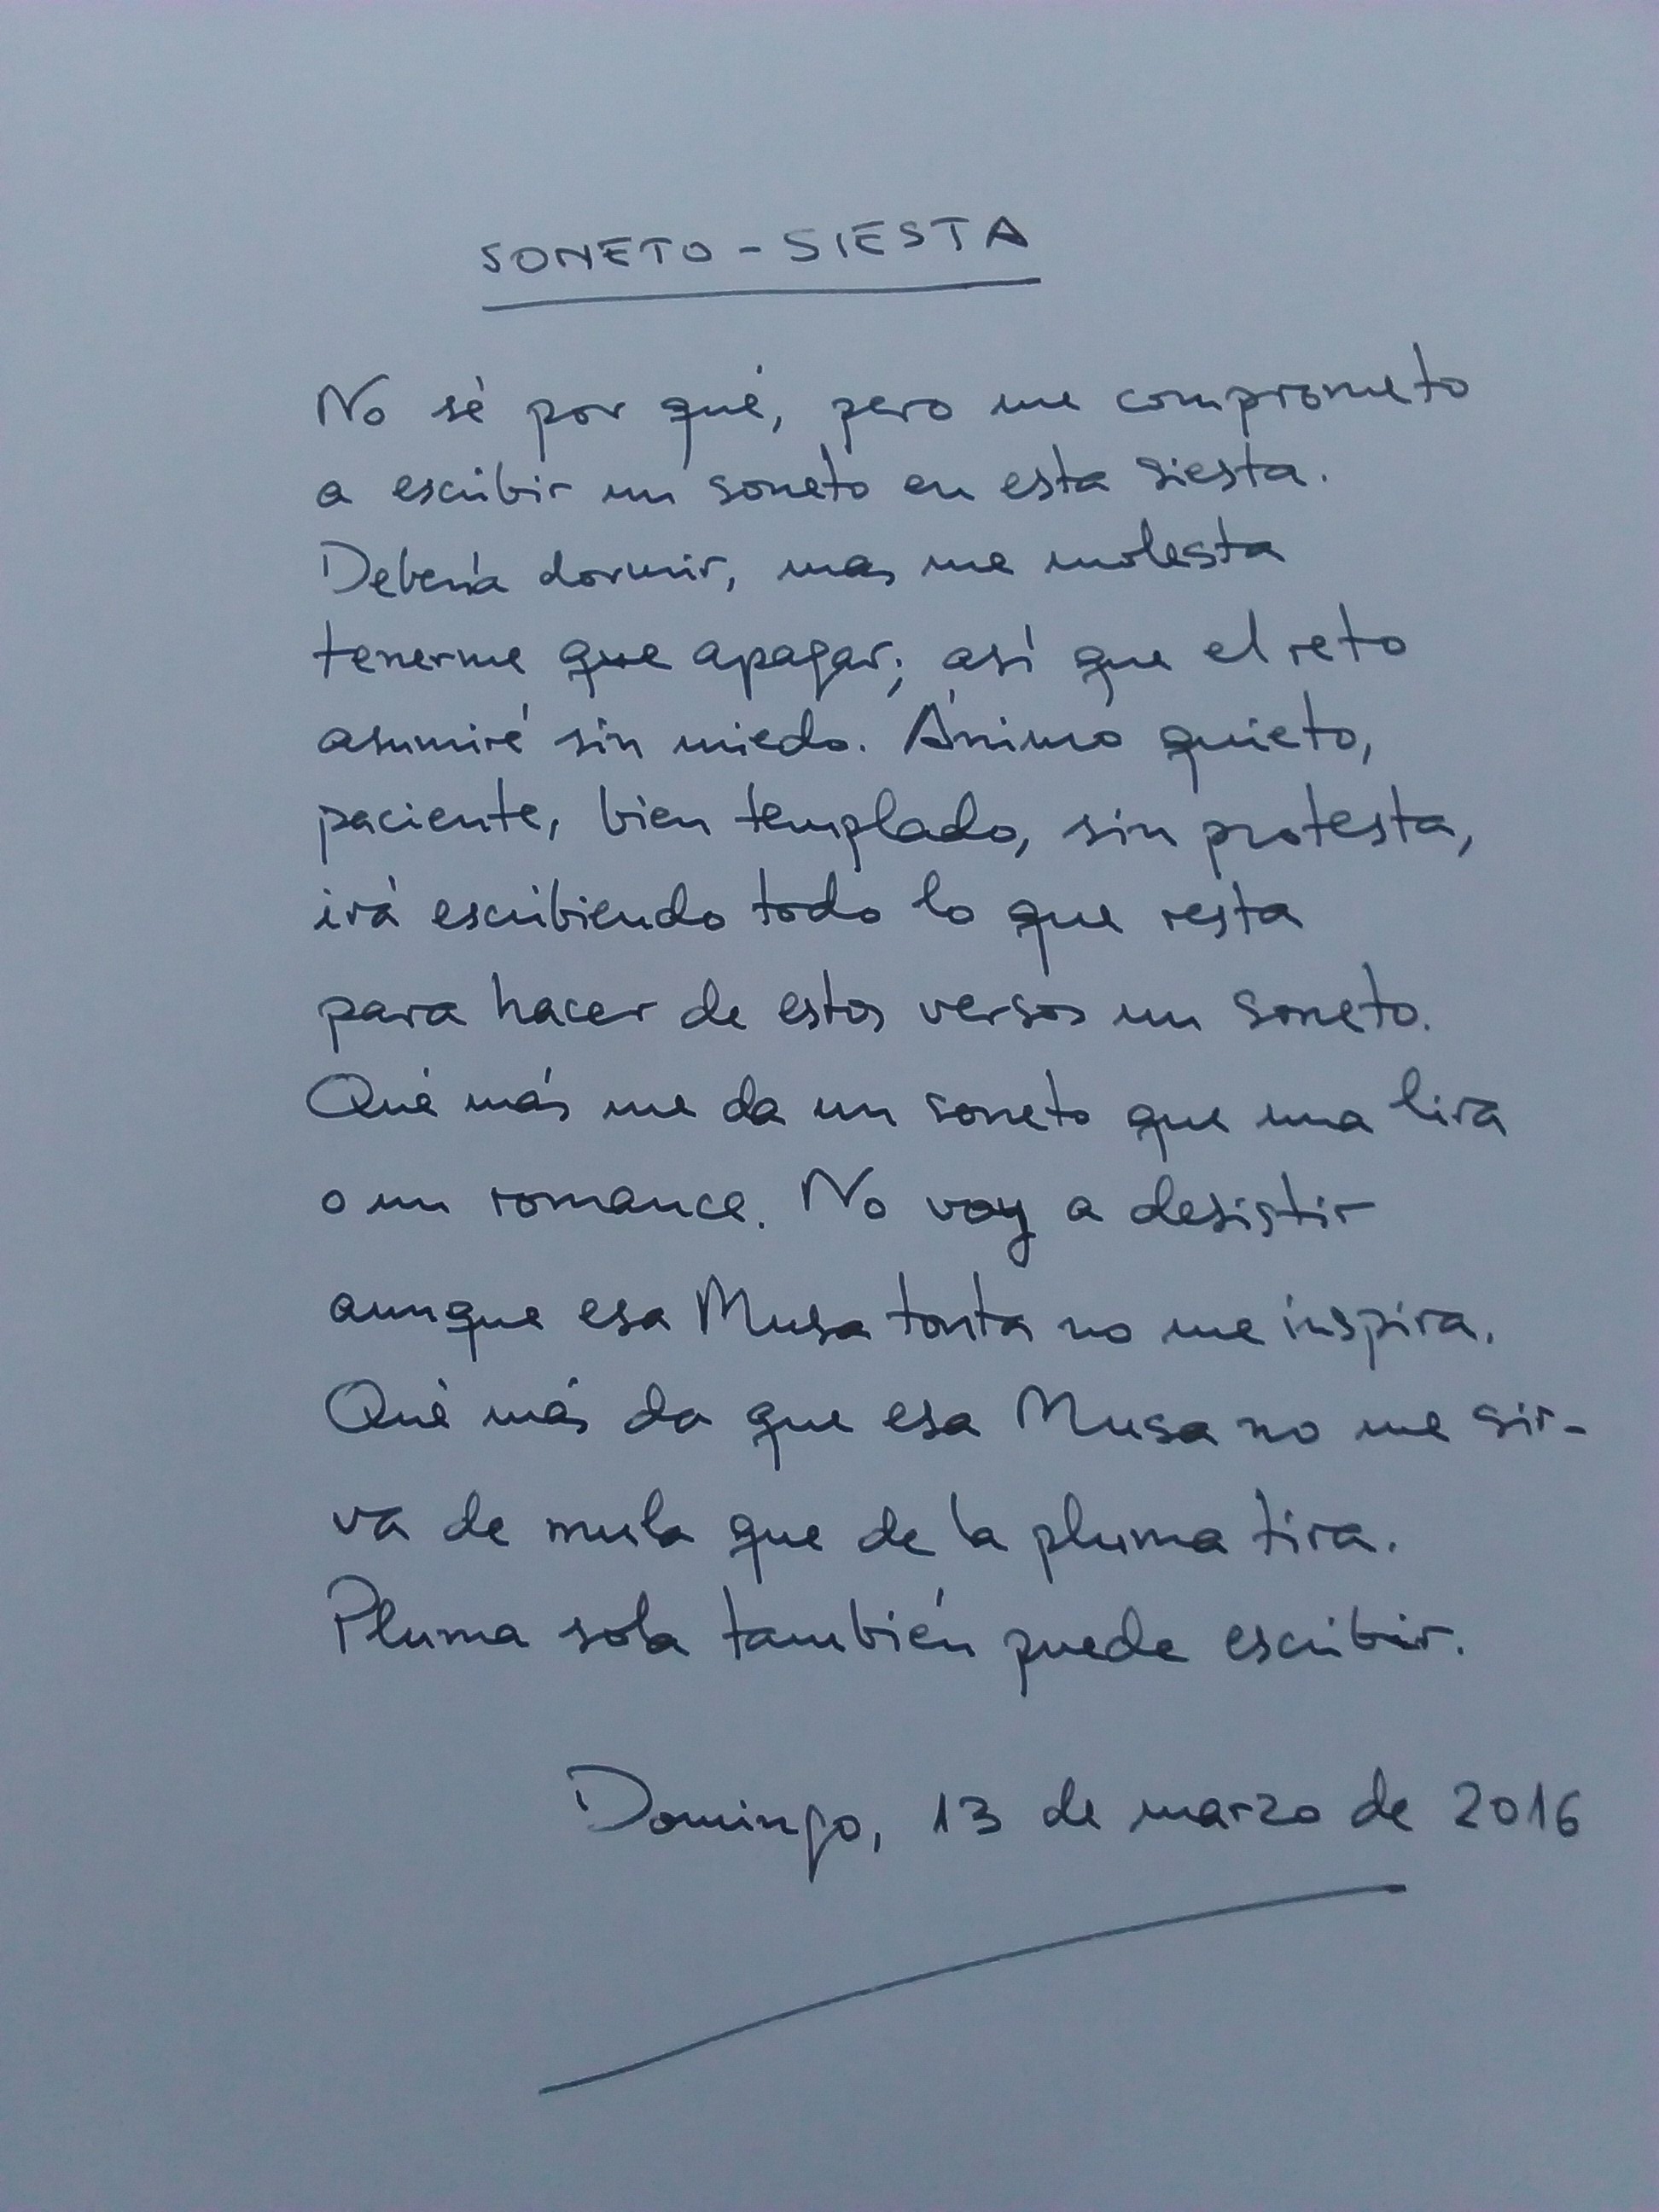 SONETO - SIESTA
No sé por qué, pero me comprometo
a escribir un soneto en esta siesta.
Debería dormir, mas me molesta
tenerme que apagar; así que el reto
asumiré sin miedo. Ánimo quieto,
paciente, bien templado, sin protesta,
irá escribiendo todo lo que resta
para hacer de estos versos un soneto.
Qué más me da un soneto que una lira
o un romance. No voy a desistir
aunque esa Musa tonta no me inspira.
Qué más da que esa Musa no me sir-
va de mula que de la pluma tira.
Pluma sola también puede escribir.
Domingo, 13 de marzo de 2016